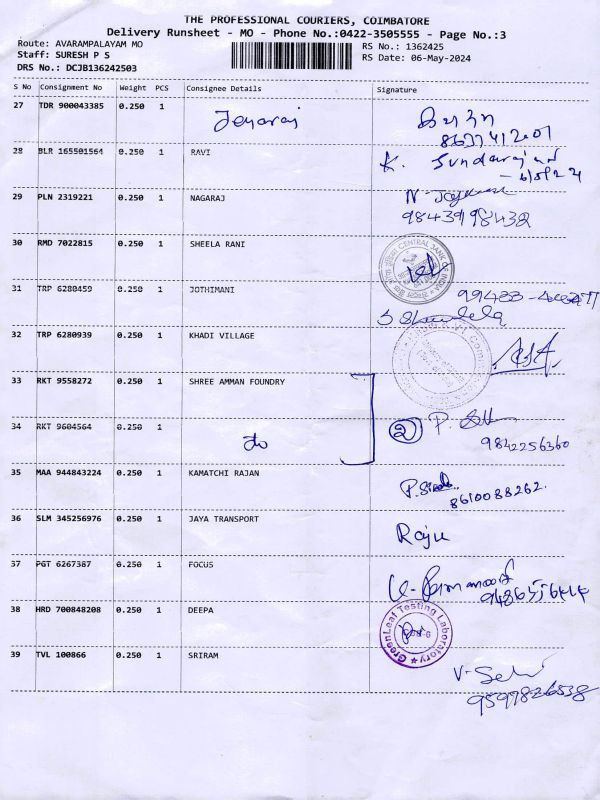 THE PROFESSIONAL COURIERS, COIMBATORE
Delivery Runsheet - MO - Phone No.:0422-3505555 - Page No.:3
Route: AVARAMPALAYAM MO
RS No.: 1362425
Staff: SURESH P S
RS Date: 06-May-2024
DRS No.: DCJB136242503
S No Consignment No Weight PCS Consignee Details Signature
27 TDR 900043385 0.250 1 Jeyaraj
28 BLR 165501564 0.250 1 RAVI K. Sundarajan
29 PLN 2319221 0.250 1 NAGARAJ
9843998432
30 RMD 7022815 0.250 1 SHEELA RANI
CENTRAL BANK OF INDIA
31 TRP 6280459 0.250 1 JOTHIMANI
32 TRP 6280939 0.250 1 KHADI VILLAGE
33 RKT 9558272 0.250 1 SHREE AMMAN FOUNDRY
34 RKT 9604564 0.250 1 do 2 P.
9842256360
35 MAA 944843224 0.250 1 KAMATCHI RAJAN
8610088262.
36 SLM 345256976 0.250 1 JAYA TRANSPORT Raju
37 PGT 6267387 0.250 1 FOCUS
38 HRD 700848208 0.250 1 DEEPA GreenLeaf Testing Laboratory
39 TVL 100866 0.250 1 SRIRAM
9597826538